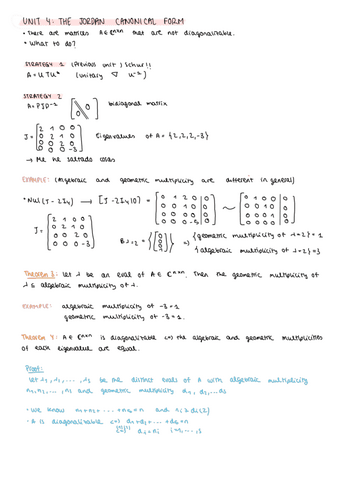 UNIT 4: THE JORDAN CANONICAL FORM
• There are matrices A∈ℂⁿˣⁿ that are not diagonalizable.
• What to do?
STRATEGY 1 (Previous unit) Schur!!
A = U T U* (unitary ▽ U⁻¹)
STRATEGY 2
A = PJP⁻¹ [ 0 0 ] bidiagonal matrix
J = [ 2 1 0 0
0 2 1 0
0 0 2 0
0 0 0 -3 ] Eigenvalues of A = {2,2,2,-3}
→ Me he saltado cosas
EXAMPLE: (Algebraic and geometric multiplicity are different in general)
• Nul(J-2I₄) → [J-2I₄|0] = [ 0 1 0 0 | 0
0 0 1 0 | 0
0 0 0 0 | 0
0 0 0 -5 | 0 ] ~ [ 0 1 0 0 | 0
0 0 1 0 | 0
0 0 0 1 | 0
0 0 0 0 | 0 ]
J = [ 2 1 0 0
0 2 1 0
0 0 2 0
0 0 0 -3 ] = {[ 1 0 0 0 ]} ⇒ {geometric multiplicity of λ=2} = 1
{algebraic multiplicity of λ=2} = 3
Theorem 3: Let λ be an eval of A∈ℂⁿˣⁿ. Then the geometric multiplicity of
λ ≤ algebraic multiplicity of λ.
EXAMPLE: algebraic multiplicity of -3 = 1
geometric multiplicity of -3 = 1
Theorem 4: A∈ℂⁿˣⁿ is diagonalizable ⇔ the algebraic and geometric multiplicities
of each eigenvalue are equal.
Proof:
Let λ₁, λ₂, ..., λₛ be the distinct evals of A with algebraic multiplicity
n₁, n₂, ..., nₛ and geometric multiplicity d₁, d₂, ... dₛ
• We know n₁+n₂+ ... +nₛ = n and
• A is diagonalizable ⇔ d₁+d₂+ ... +dₛ = n
⇔ dᵢ = nᵢ i=1, ..., s